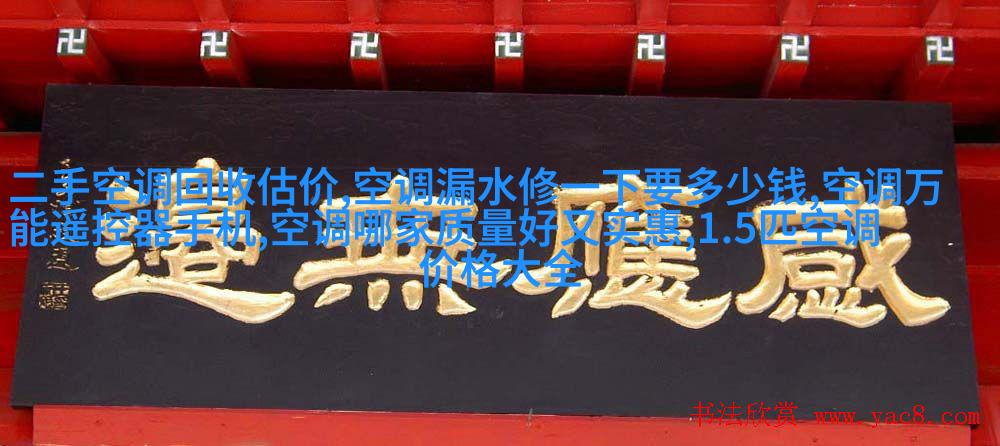 二手空调回收估价,空调漏水修一下要多少钱,空调万
能遥控器手机,空调哪家质量好又实惠,1.5匹空调
价格大全
感應無邊
书法欣赏 www.yac8.com